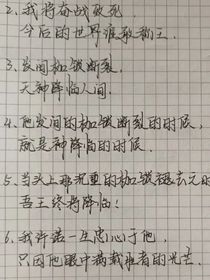 2、我将奋战致死
今后的世界谁敢称王.
3、发间枷锁断裂,
天神降临人间.
4、他发间的枷锁断裂的时候,
就是神降临的时候.
5、当头上那沉重的枷锁褪去之时
吾王终将降临!
6、我许诺一生忠心于他,
只因他眼中满载推者的光芒.